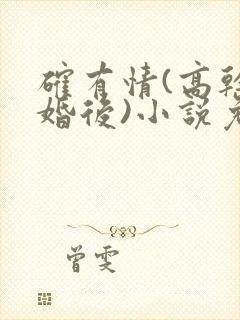 確有情(高幹
婚後)小說免
曾雯